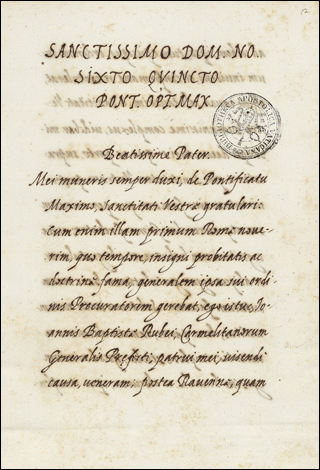 SANCTISSIMO DOM. NO.
SIXTO QVINCTO
PONT. OPT. MAX.
Beatissime Pater.
Mei muneris semper duxi, de Pontificatu
Maximo, Sanctitati Vestrę gratulari:
Cum enim illam primum Romę nove-
rim, quo tempore, insigni probitatis ac
doctrinę fama, generalem ipsa sui ordi-
nis Procuratorem gerebat, ego istuc, Jo-
annis Baptistę Rubei, Carmelitanorum
Generalis Prefecti, patrui mei, visendi
causa, veneram; postea Ravennę, quam